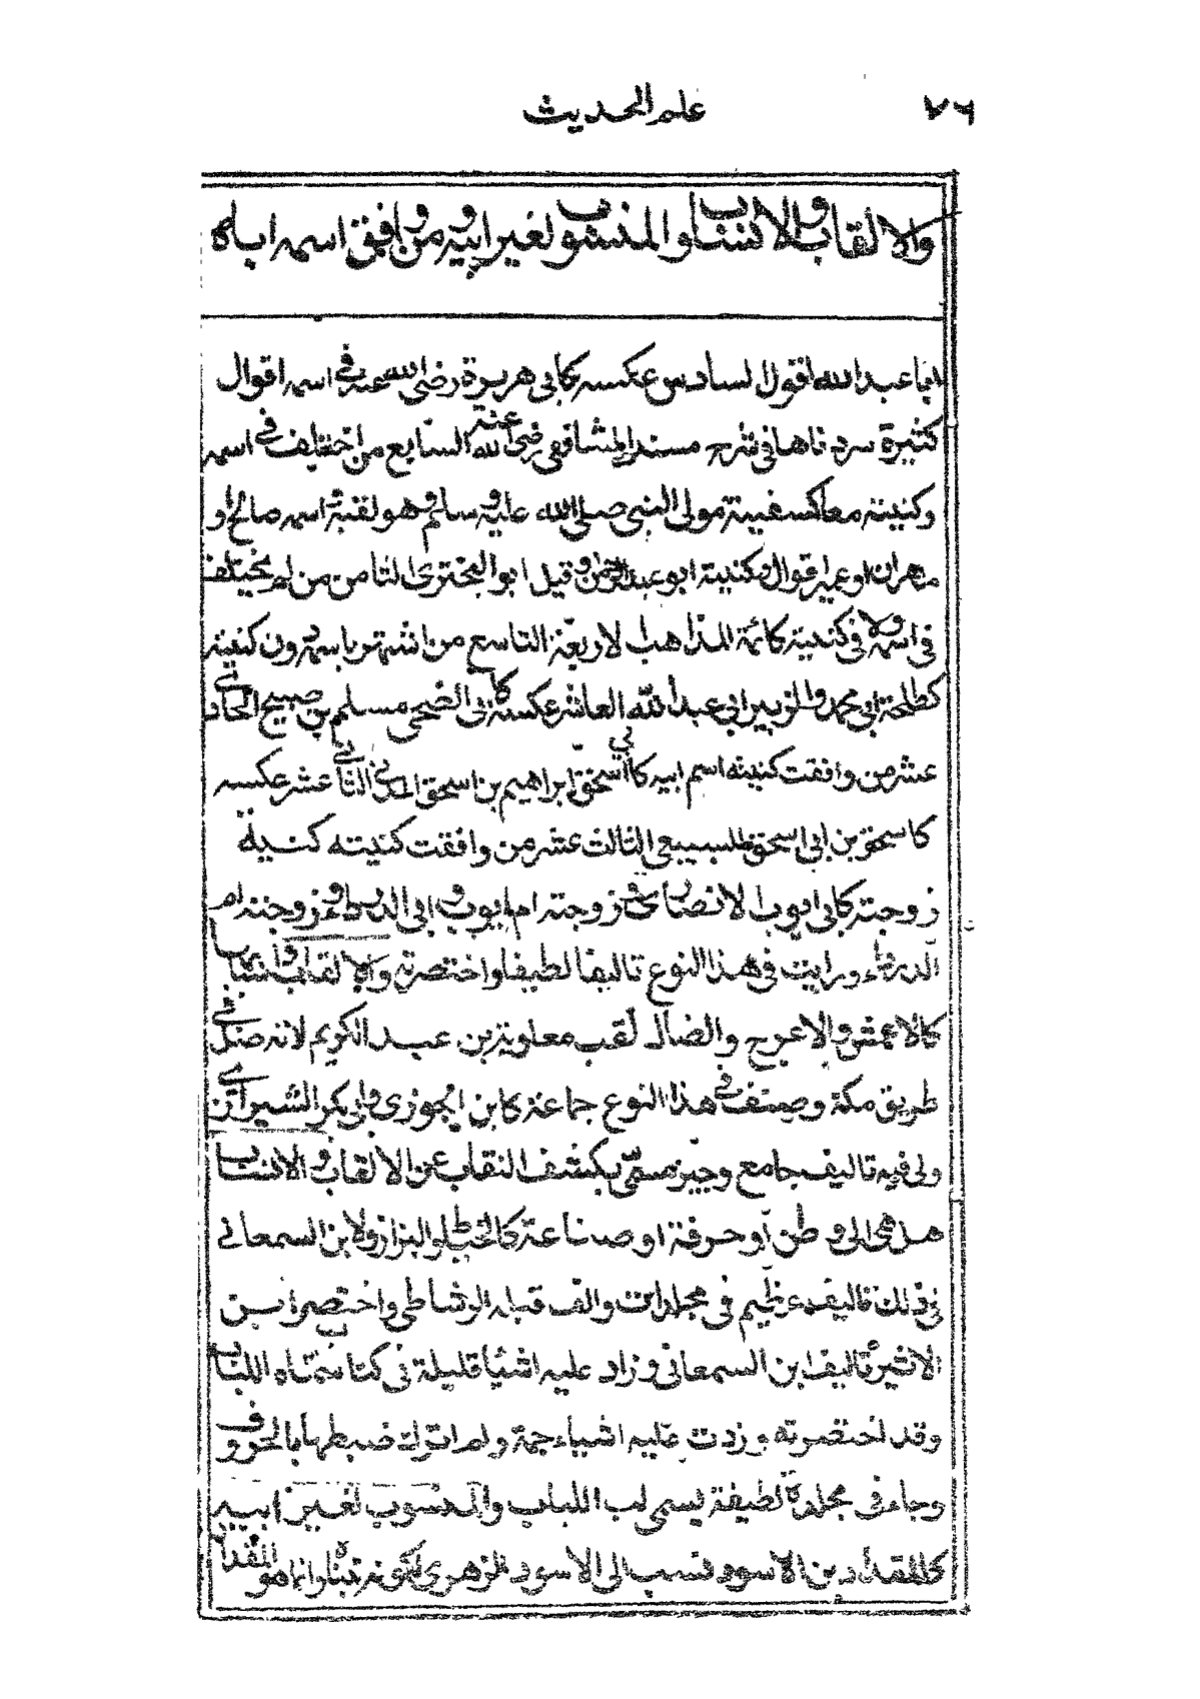 ٧٦ علم الحديث
والالقاب والانساب والمنسوب لغير ابيه ومن وافق اسمه اباه
ابا عبد الله اقوال السادس عكسه كابي هريرة رضى الله عنه في اسمه اقوال
كثيرة سردناها في شرح مسند الشافعي رضي الله عنه السابع من اختلف في اسمه
وكنيته معا كسفينة مولى النبي صلى الله عليه وسلم وهو لقبه اسمه صالح او
مهران او عمير اقوال وكنيته ابو عبد الرحمن وقيل ابو البختري الثامن من لم يختلف
في اسمه ولا في كنيته كائمة المذاهب الاربعة التاسع من اشتهر باسمه دون كنيته
كطلحة ابي محمد والزبير ابي عبد الله العاشر عكسه كابي الضحى مسلم بن صبيح الحادي
عشر من وافقت كنيته اسم ابيه كابي اسحق ابراهيم بن اسحق المدني الثاني عشر عكسه
كاسحق بن ابي اسحق السبيعي الثالث عشر من وافقت كنيته كنية
زوجته كابي ايوب الانصاري وزوجته ام ايوب وابي الدرداء وزوجته ام
الدرداء ورايت في هذا النوع تاليفا لطيفا واختصرته والالقاب واسبابها
كالاعمش والاعرج والضال لقب معاوية بن عبد الكريم لانه ضل في
طريق مكة وصنف في هذا النوع جماعة كابن الجوزي وابي بكر الشيرازي
ولى فيه تاليف جامع وجيز مسمى بكشف النقاب عن الالقاب والانساب
هل هي الى وطن او حرفة او صناعة كالخياط والبزاز ولابن السمعاني
في ذلك تاليف عظيم في مجلدات والف قبله الرشاطي واختصر ابن
الاثير تاليف ابن السمعاني وزاد عليه اشياء قليلة في كتاب سماه اللباب
وقد اختصرته وزدت عليه اشياء جمة ولم اترك ضبطها بالحروف
وجاء في مجلدة لطيفة يسمى لب اللباب والمنسوب لغير ابيه
كالمقداد بن الاسود نسب الى الاسود الزهري لكونه تبناه وانما هو المقداد